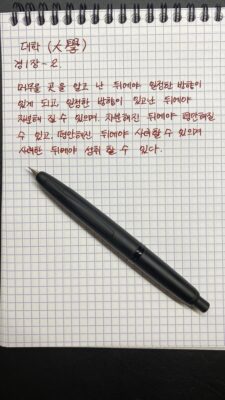 대학 (大學)
경 1장 - 2.
머무를 곳을 알고 난 뒤에야 일정한 방향이
있게 되고, 일정한 방향이 있고난 뒤에야
차분해 질 수 있으며, 차분해진 뒤에야 평안해질
수 있고, 평안해진 뒤에야 사려할 수 있으며
사려한 뒤에야 성취 할 수 있다.